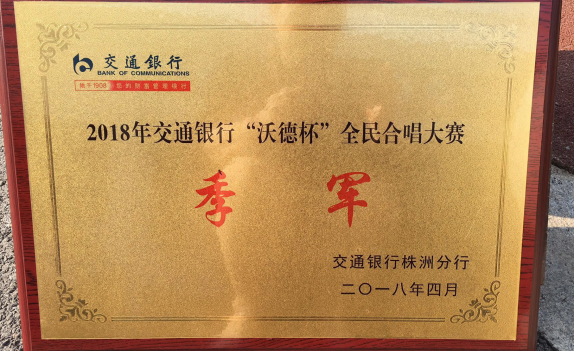 交通銀行
BANK OF COMMUNICATIONS
始于1908 您的财富管理银行
2018年交通银行“沃德杯”全民合唱大赛
季军
交通银行株洲分行
二〇一八年四月